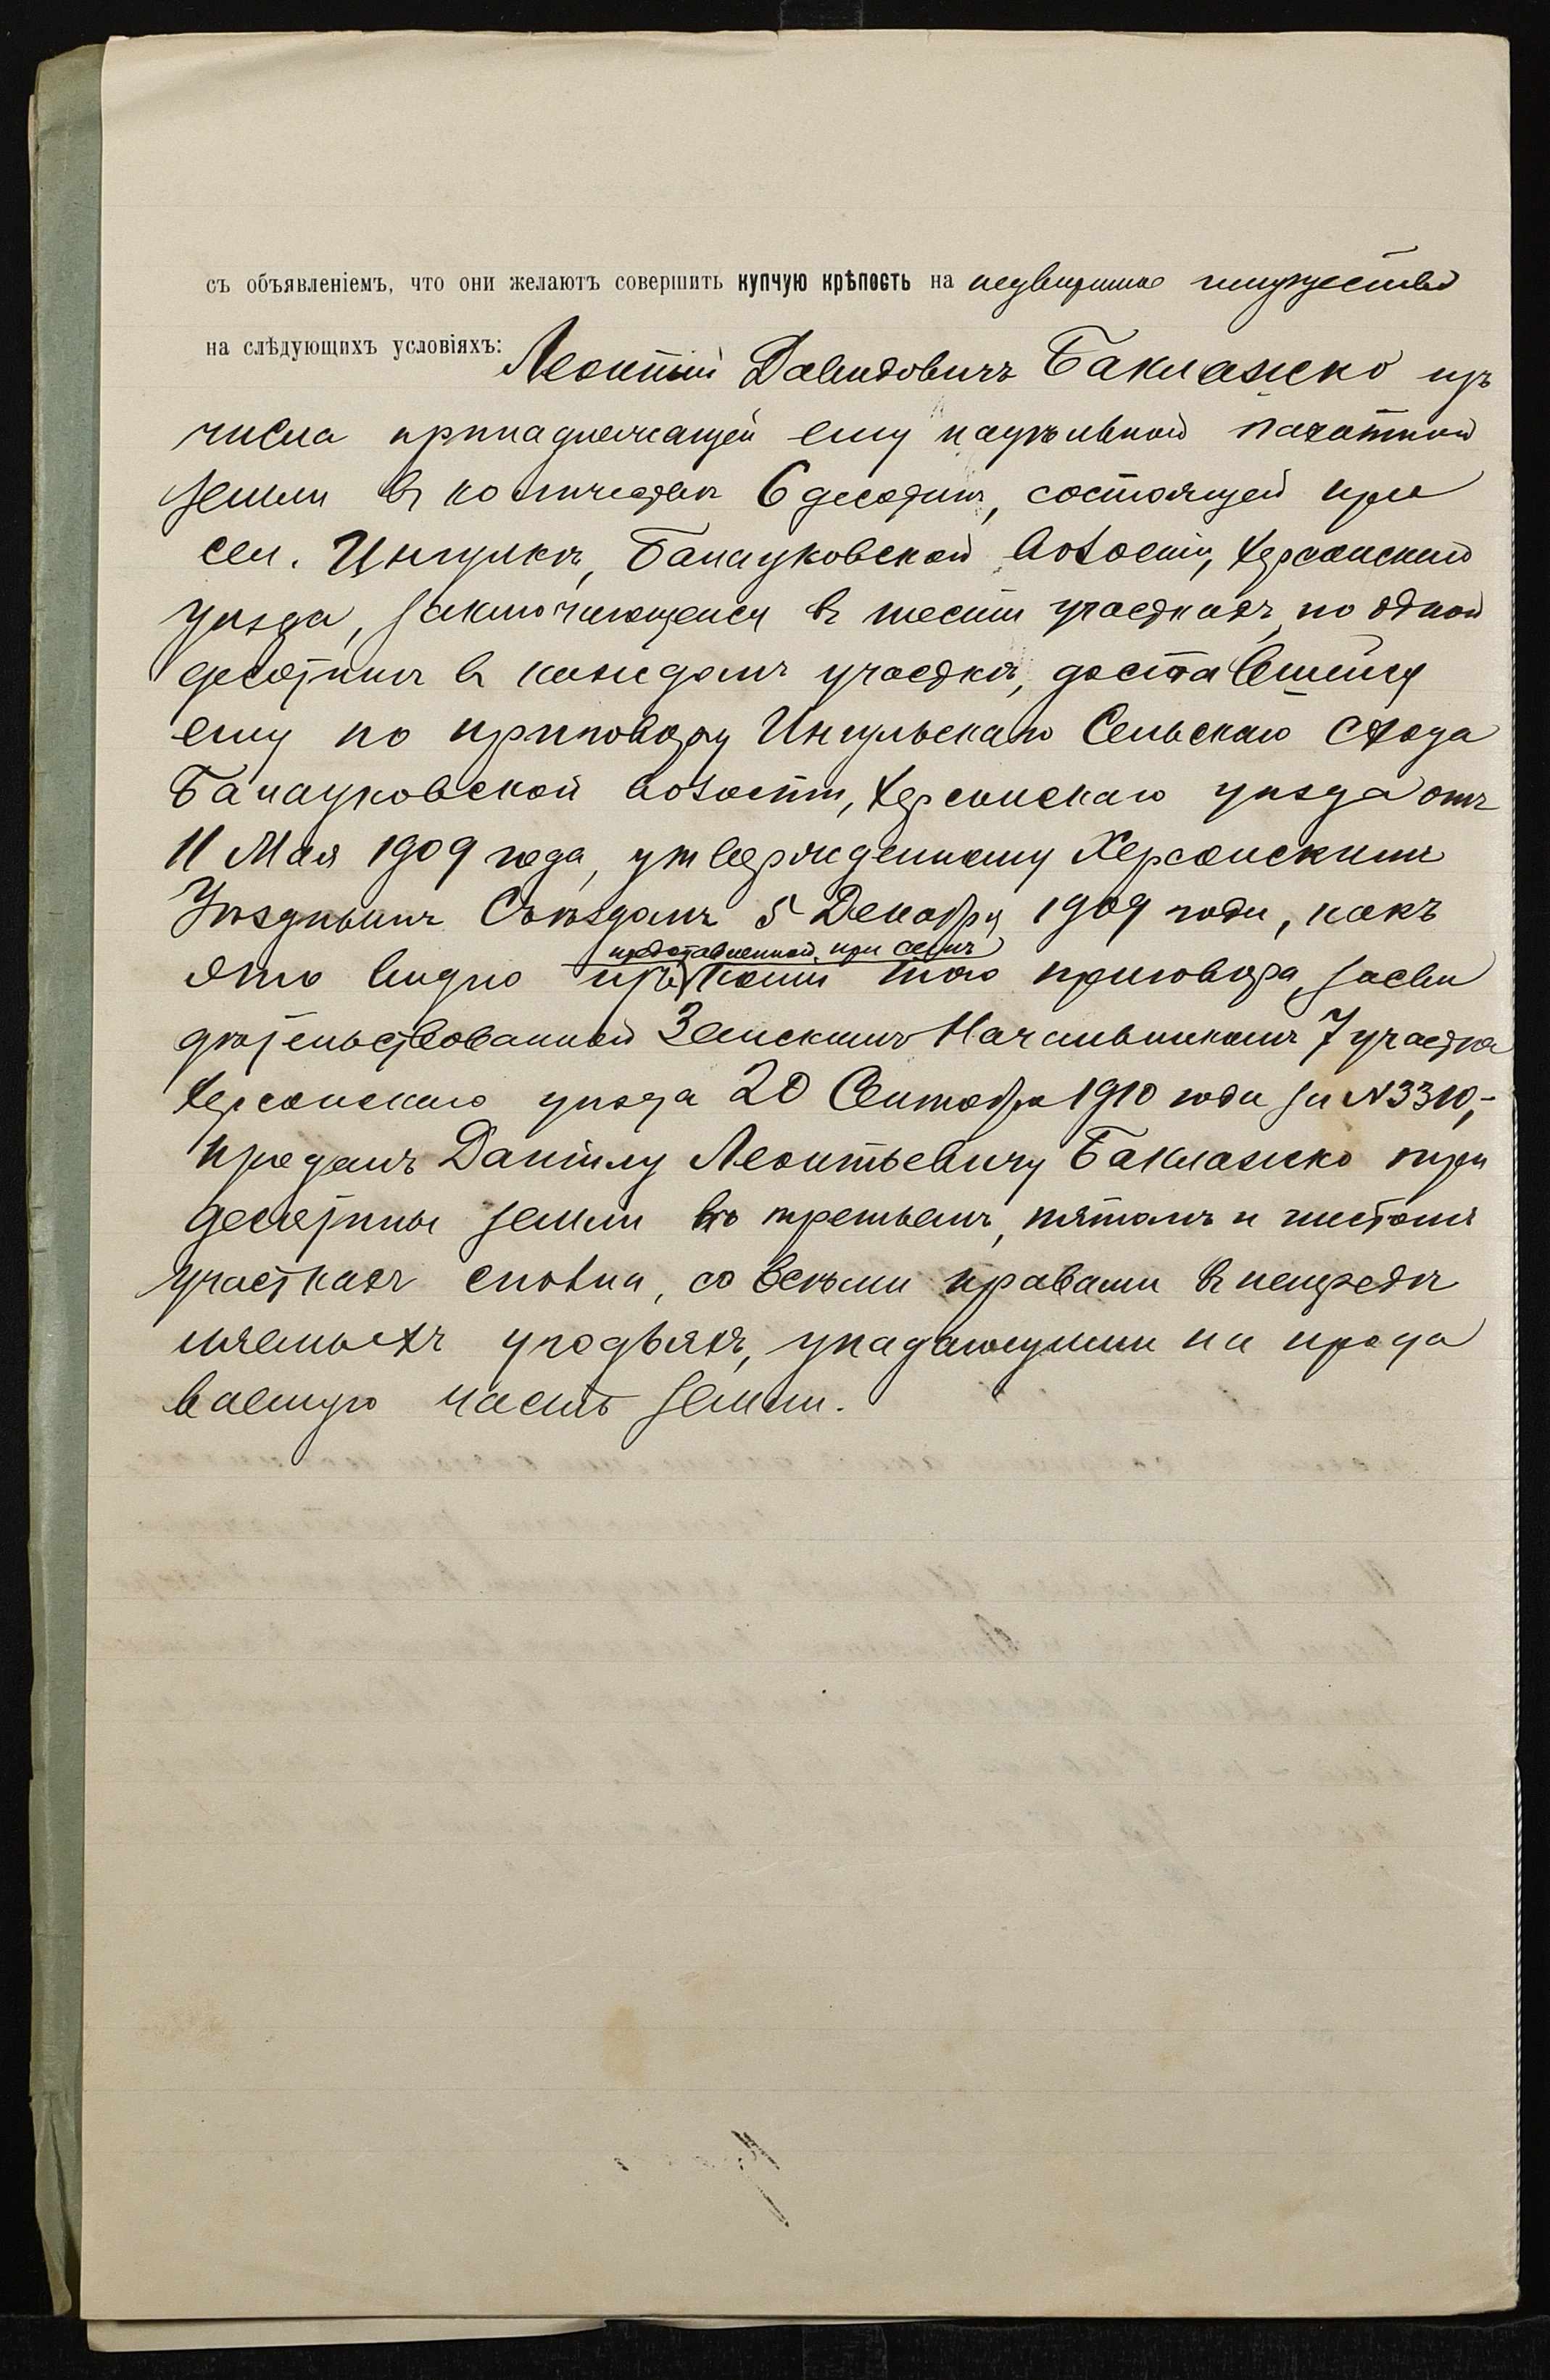 съ объявленіемъ, что они желаютъ совершить купчую крѣпость на недвижимое имущество
на слѣдующихъ условіяхъ: Леонтій Давидовичъ Баклажко изъ
числа принадлежащей ему надѣльной пахотной
земли въ количествѣ 6 десятинъ, состоящей при
сел. Ингулкѣ, Балацковской волости, Херсонскаго
уѣзда, заключающейся въ шести участкахъ, по одной
десятинѣ въ каждомъ участкѣ, доставшейся
ему по приговору Ингульскаго Сельскаго Схода
Балацковской волости, Херсонскаго уѣзда отъ
11 Мая 1909 года, утвержденному Херсонскимъ
Уѣзднымъ Съѣздомъ 5 Декабря 1909 года, какъ
представленной при семъ
это видно изъ копіи того приговора, засви
дѣтельствованной Земскимъ Начальникомъ 7 участка
Херсонскаго уѣзда 20 Сентября 1910 года за N 3310,-
продалъ Даніилу Леонтьевичу Баклажко три
десятины земли въ третьемъ, пятомъ и шестомъ
участкахъ сполна, со всѣми правами въ нераздѣ
ляемыхъ угодьяхъ, упадающими на прода
ваемую часть земли.